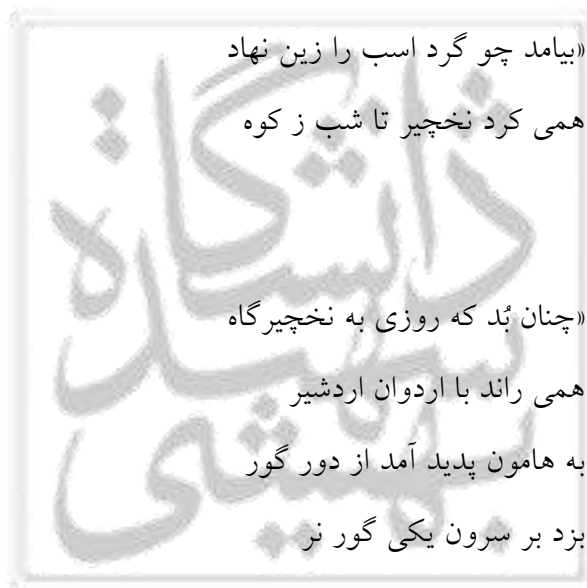 «بیامد چو گرد اسب را زین نهاد
همی کرد نخچیر تا شب ز کوه
«چنان بُد که روزی به نخچیرگاه
همی راند با اردوان اردشیر
به هامون پدید آمد از دور گور
بزد بر سرون یکی گور نر
دانشگاه شهید بهشتی